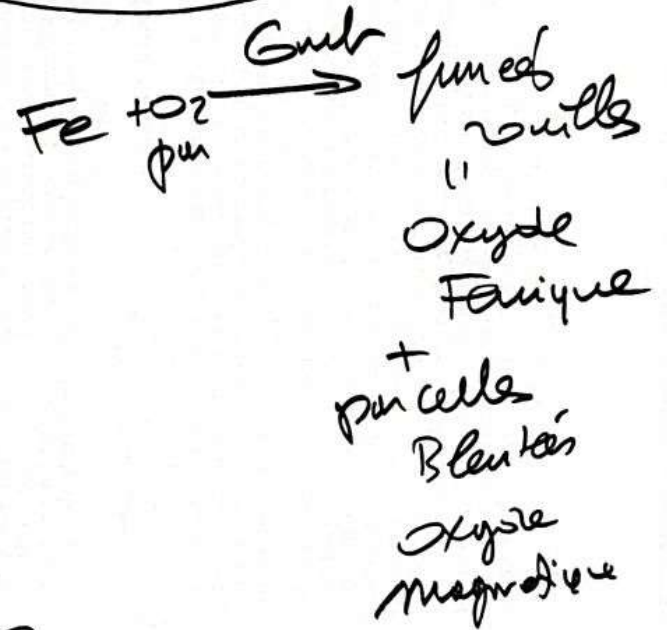 Fe + O2 Comb
pur
fumées
rouilles
=
Oxyde
Ferrique
+
parcelles
Bleutées
oxyde
magnétique